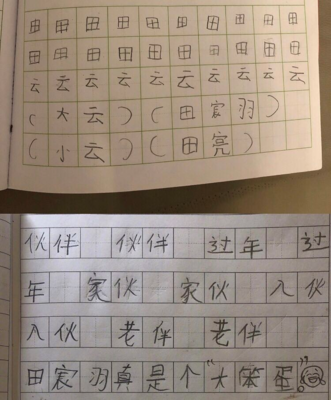 田 田 田 田 田 田 田 田 田 田
田 田 田 田 田 田 田 田 田 田
云 云 云 云 云 云 云 云 云 云
（大云）（田宸羽）
（小云）（田亮）
伙伴 伙伴 过年 过
年 家伙 家伙 入伙
入伙 老伴 老伴
田宸羽真是个“大笨蛋”